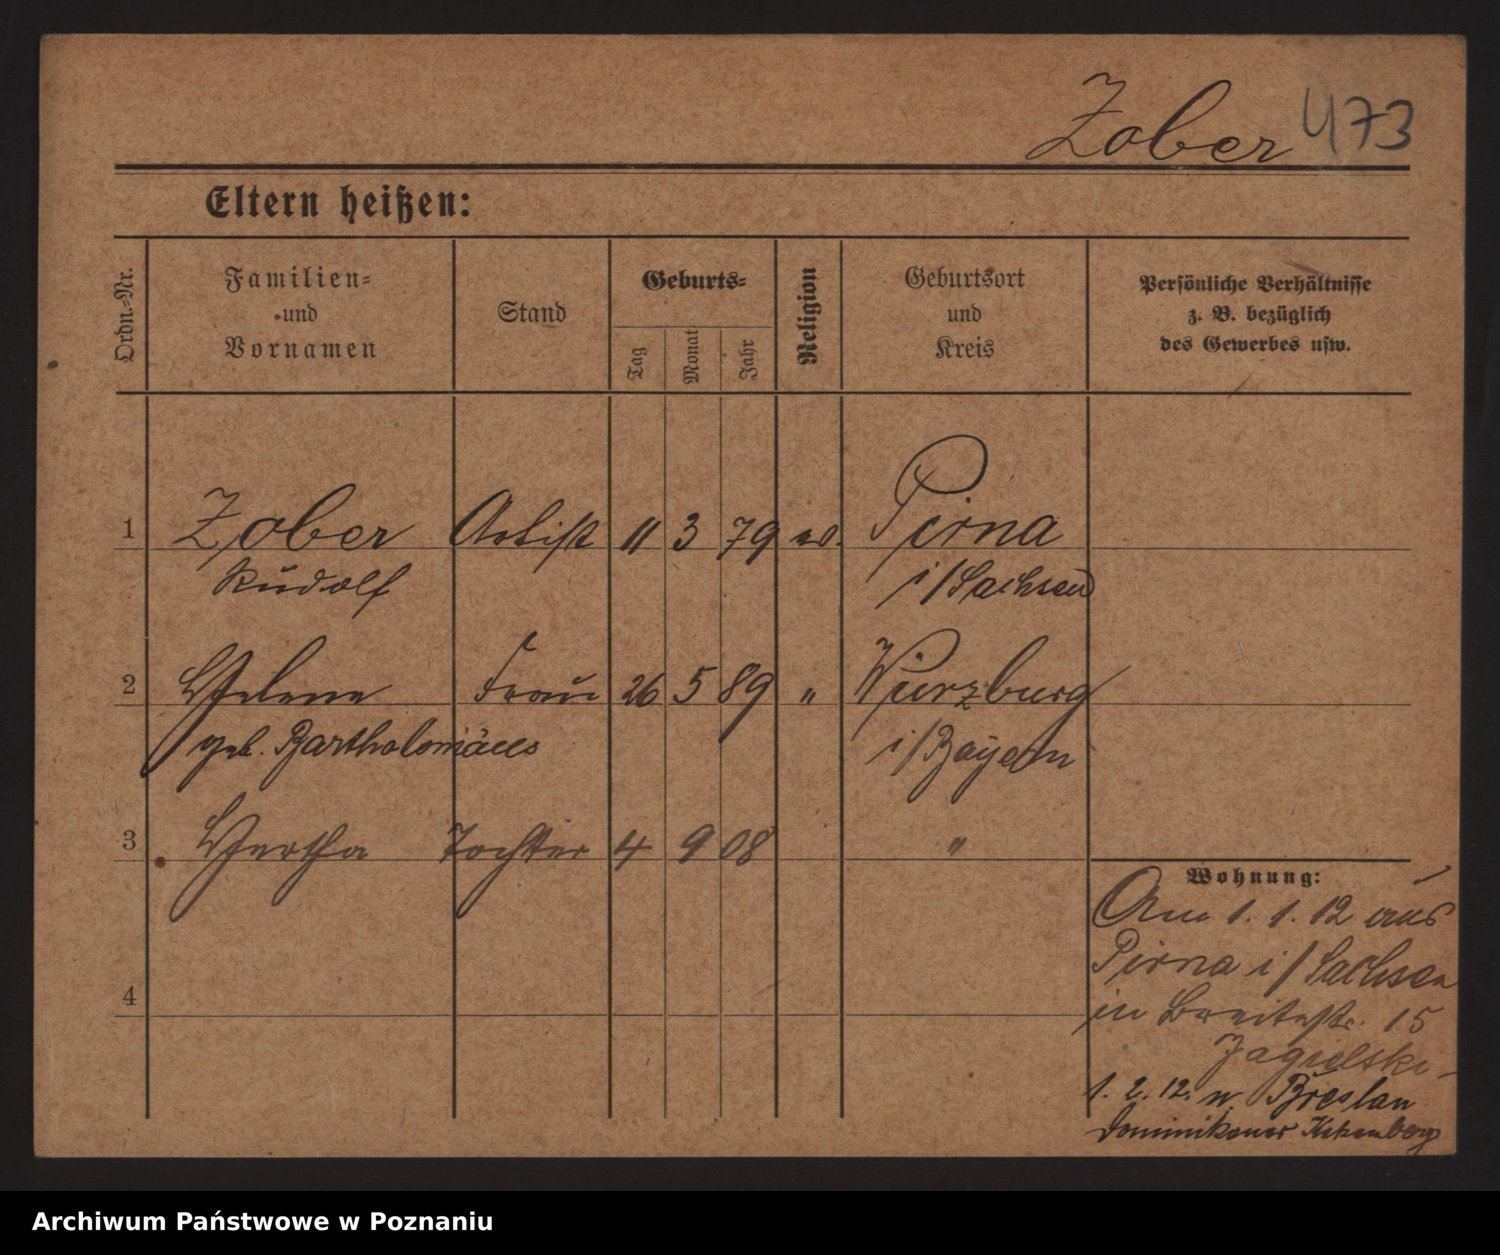 Zober 473
Eltern heißen:
Ordn.-Nr.
Familien-
und
Vornamen
Stand
Geburts-
Tag
Monat
Jahr
Religion
Geburtsort
und
Kreis
Persönliche Verhältnisse
z. B. bezüglich
des Gewerbes usw.
1 Zober Artist 11 3 79 ev. Pirna
Rudolf i/Sachsen
2 Helene Frau 26 5 89 " Würzburg
geb. Bartholomäus i/Bayern
3 Hertha Tochter 4 9 08 "
4
Wohnung:
Am 1. 1. 12 aus
Pirna i/Sachsen
in Breitestr. 15
Jagielski
1. 2. 12. n. Breslau
Dominikaner
Archiwum Państwowe w Poznaniu